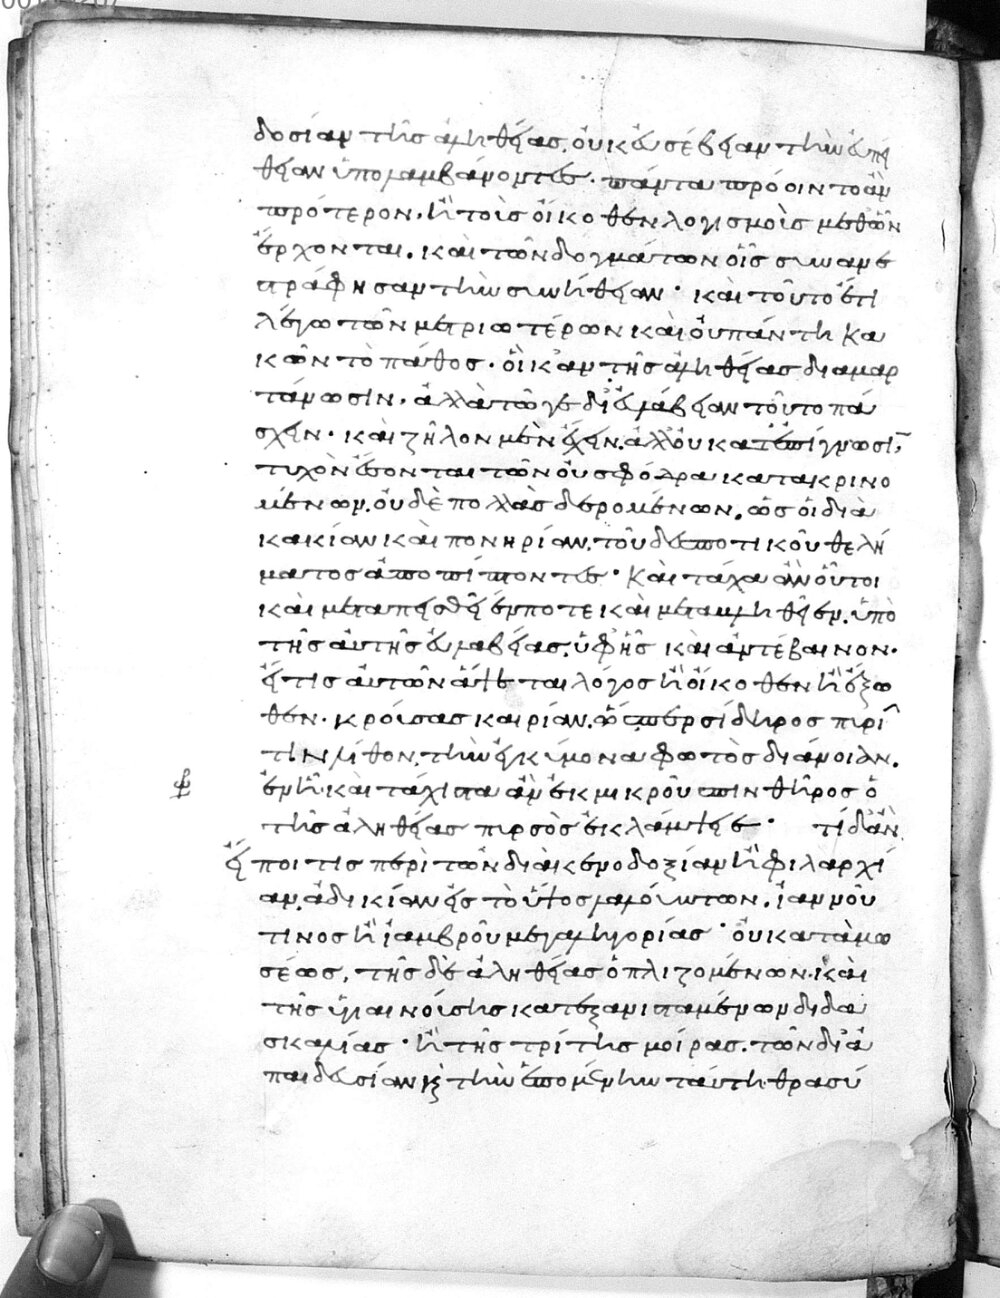 δοσίαν τῆς ἀληθείας. οὐκ εὐσέβειαν τὴν ἀπεί
θειαν ὑπολαμβάνοντες· πάντα πρόοιντο ἂν
πρότερον, ἢ τοῖς οἴκοθεν λογισμοῖς μεθ' ὧν
ἔρχονται. καὶ τῶν δογμάτων οἷς συνανε
τράφησαν τὴν συνήθειαν· καὶ τοῦτο ἔτι
λέγω τῶν μετριωτέρων καὶ οὐ πάντη κα
κῶν τὸ πάθος· οἳ κἂν τῆς ἀληθείας διαμαρ
τάνωσιν, ἀλλὰ τῷ γε δι' εὐλάβειαν τοῦτο πά
σχειν· καὶ ζῆλον μὲν ἔχειν. ἀλλ' οὐ κατ' ἐπίγνωσιν,
τυχὸν ἔσονται τῶν οὐ σφόδρα κατακρινο
μένων. οὐδὲ πολλὰς δερομένων, ὡς οἱ διὰ
κακίαν καὶ πονηρίαν. τοῦ δεσποτικοῦ θελή
ματος ἀποπίπτοντες· καὶ τάχα ἂν οὗτοι
καὶ μεταπεισθεῖέν ποτε καὶ μεταμληθεῖεν. ὑπὸ
τῆς αὐτῆς εὐλαβείας. ὑφ' ἧς καὶ ἀντέβαινον·
εἴ τις αὐτῶν ἅψεται λόγος ἢ οἴκοθεν ἢ ἔξω
θεν· κρούσας καιρίαν. ὥσπερ σίδηρος πυρῖ
τιν λίθον. τὴν ἐγκύμονα φωτὸς διάνοιαν.
ἐν ᾗ καὶ τάχιστα ἂν ἐκ μικροῦ σπινθῆρος ὁ
τῆς ἀληθείας πυρσὸς ἐκλάμψειε· τί δ' ἂν
εἴποι τις περὶ τῶν διὰ κενοδοξίαν ἢ φιλαρχί
αν. ἀδικίαν εἰς τὸ ὕψος λαλούντων. ἰαννοῦ
τινος ἢ ἰαμβροῦ μεγαληγορίας· οὐ κατὰ μω
σέως, τῆς δὲ ἀληθείας ὁπλιζομένων. καὶ
τῆς ὑγιαινούσης κατεξανισταμένων διδα
σκαλίας· ἢ τῆς τρίτης μοίρας. τῶν δι' ἀ
παιδευσίαν καὶ τὴν ἑπομένην ταύτη θρασύ